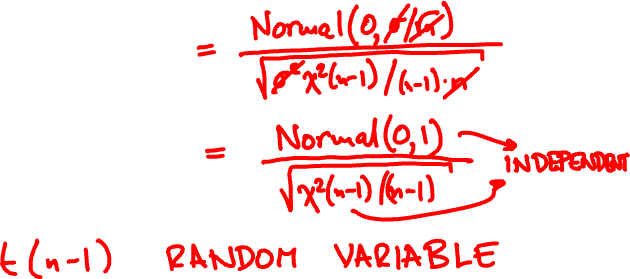 = Normal(0, σ/√n) / √(σ² χ²(n-1) / (n-1)·n)
= Normal(0,1) / √(χ²(n-1)/(n-1)) INDEPENDENT
t(n-1) RANDOM VARIABLE